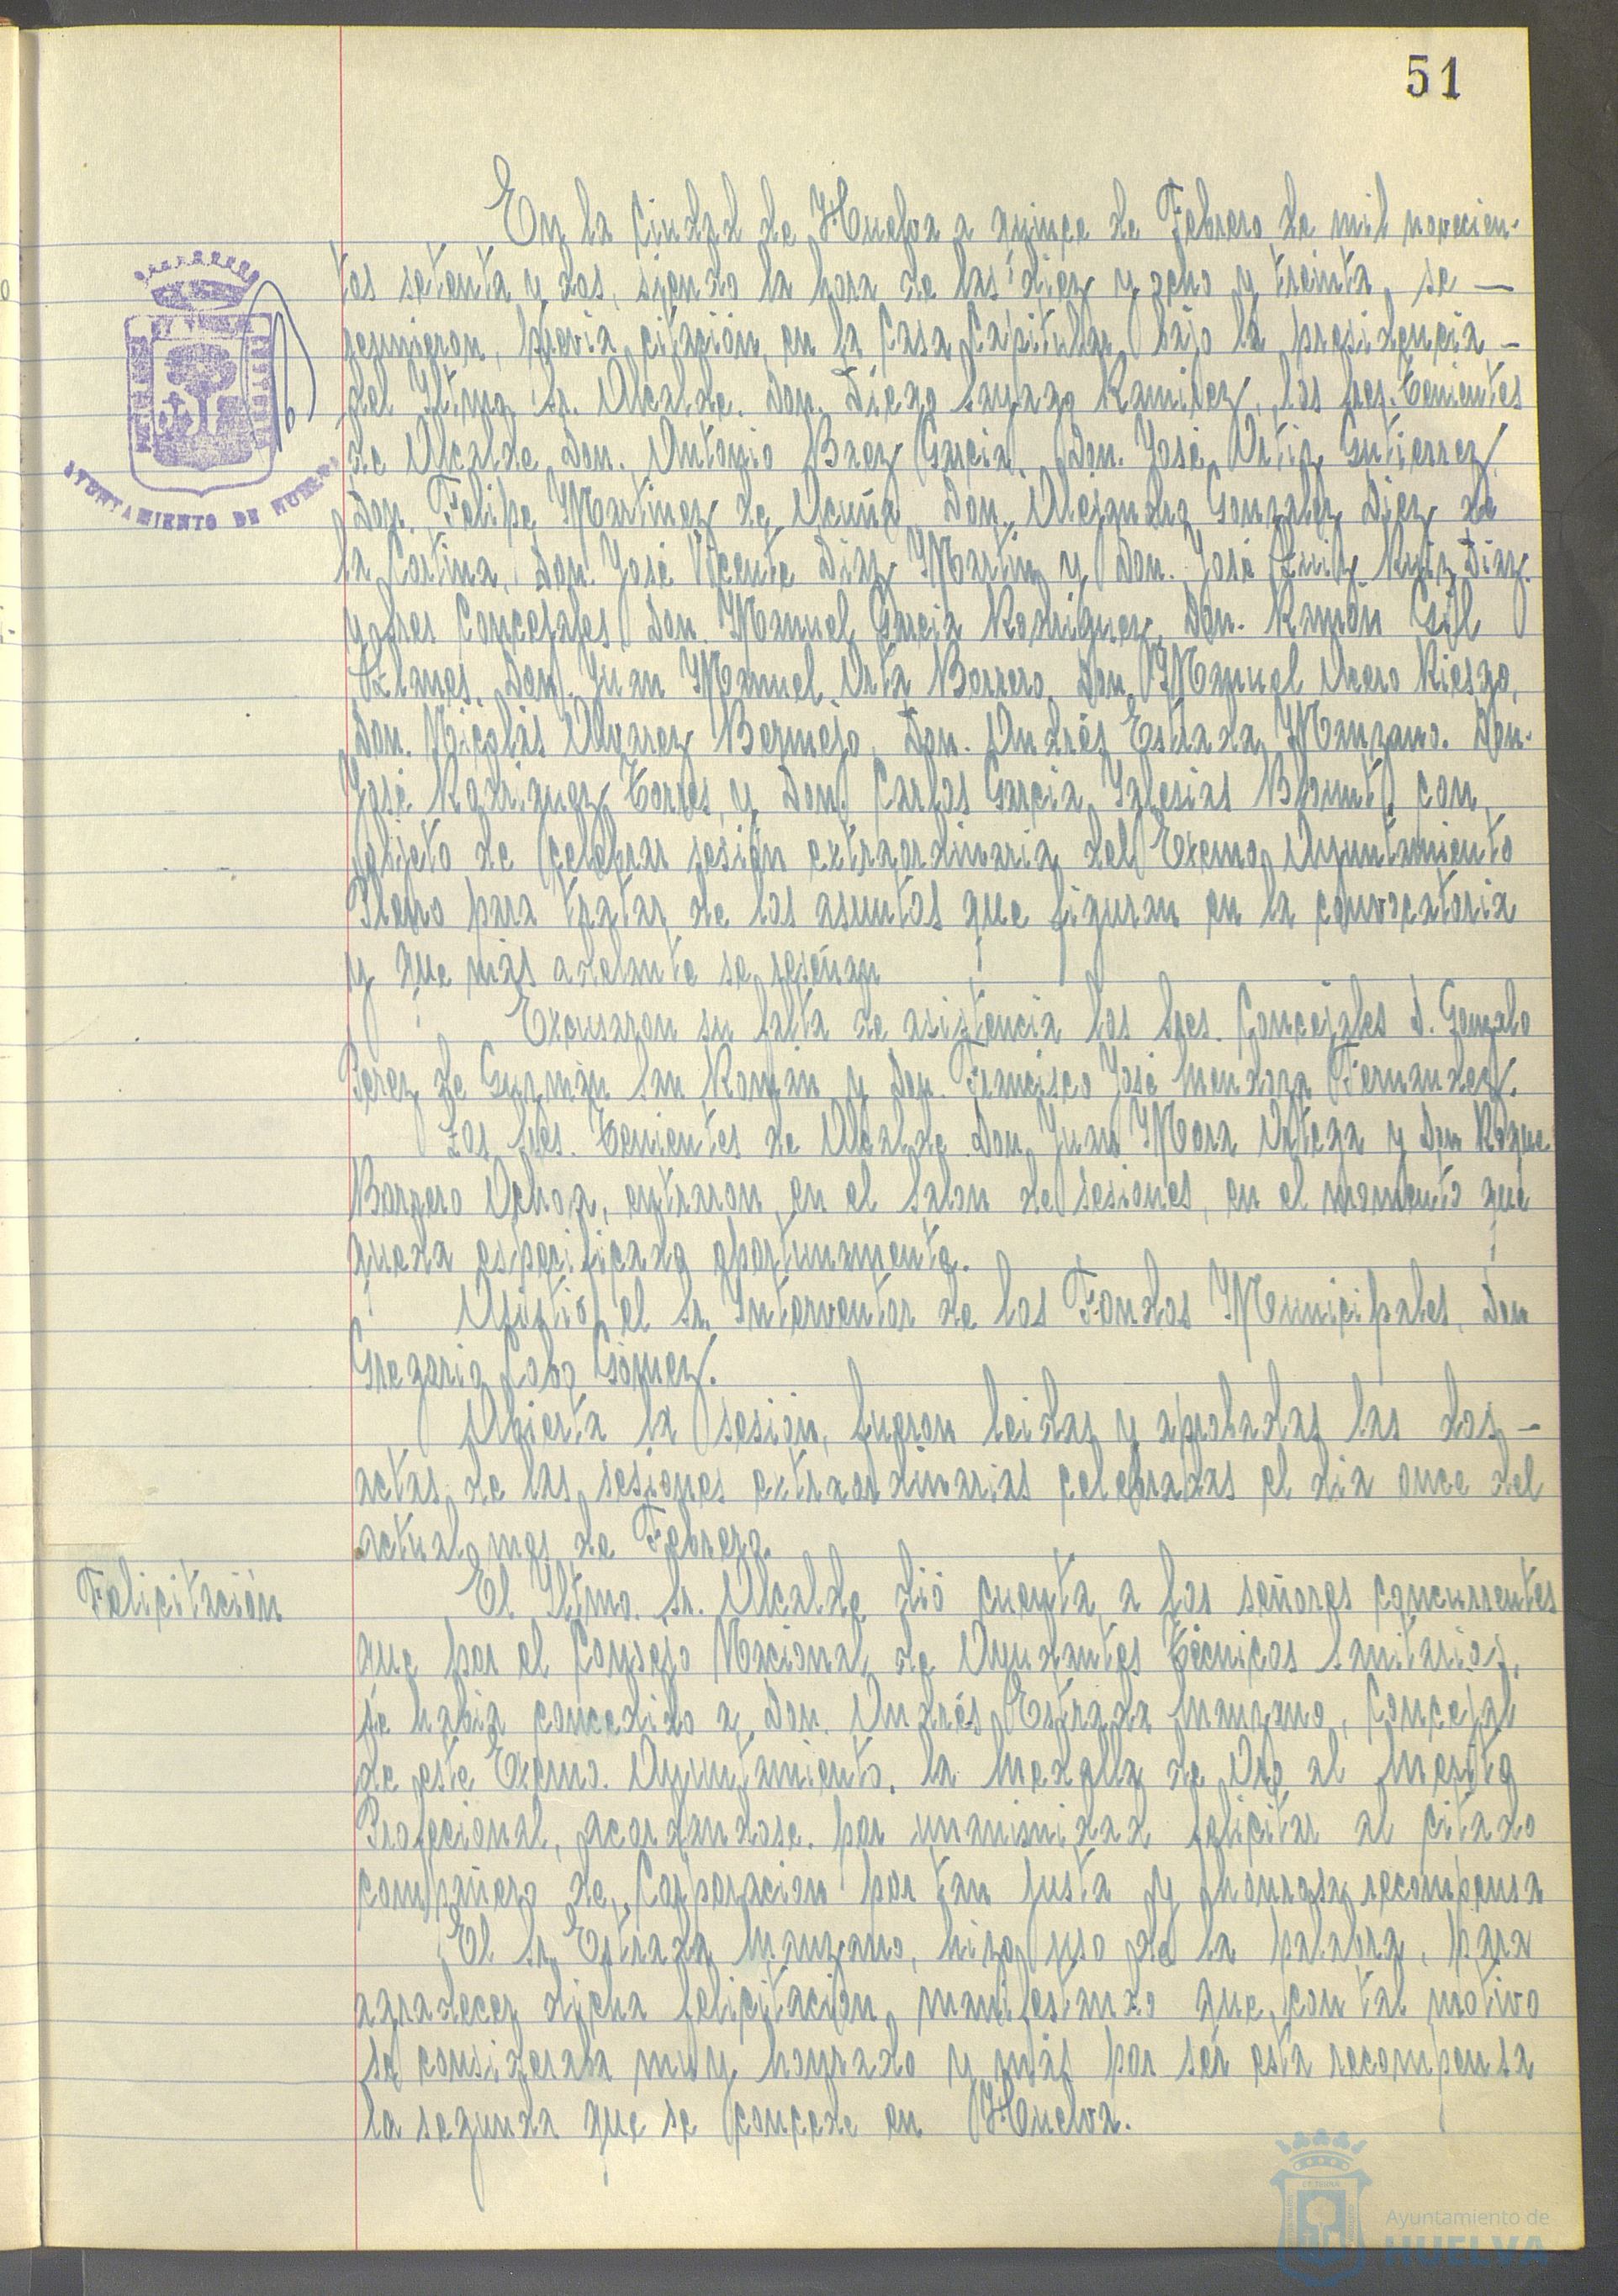 51
En la Ciudad de Huelva a quince de Febrero de mil novecien-
tos setenta y dos, siendo la hora de las diez y ocho y treinta, se —
reunieron, previa citación, en la Casa Capitular, bajo la presidencia —
del Iltmo. Sr. Alcalde. Don. Diego Sayago Ramirez, los Sres. Tenientes
de Alcalde, Don. Antonio Baez Garcia, Don. José Ortiz Gutierrez,
Don. Felipe Martinez de Acuña, Don. Alejandro Gonzalez Diez de
la Cortina, Don. José Vicente Diaz Martin y Don. José Luiz Ruiz Diaz.
y Sres Concejales Don. Manuel Garcia Rodriguez, Don. Ramón Gil
Llanes, Don. Juan Manuel Orta Borrero, Don Manuel Acero Riesgo,
Don. Nicolás Alvarez Bermejo, Don. Andrés Estrada Manzano. Don.
José Rodriguez Torres, y Don. Carlos Garcia Iglesias Blount, con
objeto de celebrar sesión extraordinaria del Excmo. Ayuntamiento
Pleno para tratar de los asuntos que figuran en la convocatoria
y que más adelante se reseñan
Excusaron su falta de asistencia los Sres. Concejales D. Gonzalo
Perez de Guzmán San Román y Don. Francisco José Mendoza Fernandez.
Los Sres. Tenientes de Alcalde Don Juan Mora Ortega y Don Roque
Barrero Ochoa, entraron en el salon de sesiones, en el momento que
queda especificado oportunamente.
Asistió el Sr. Interventor de los Fondos Municipales, Don
Gregorio Cobo Gómez.
Abierta la sesión, fueron leidas y aprobadas las dos —
actas de las sesiones extraordinarias celebradas el dia once del
actual mes de Febrero.
Felicitación
El Iltmo. Sr. Alcalde dió cuenta a los señores concurrentes
que por el Consejo Nacional de Ayudantes Técnicos Sanitarios,
se habia concedido a Don. Andrés Estrada Manzano, Concejal
de este Excmo. Ayuntamiento, la Medalla de Oro al Merito
Profecional, acordandose por unanimidad felicitar al citado
compañero de Corporacion por tan justa y honrosa recompensa
El Sr. Estrada Manzano, hizo uso de la palabra, para
agradecer dicha felicitacion, manifestando que con tal motivo
se consideraba muy honrado y más por ser esta recompensa
la segunda que se concede en Huelva.
AYUNTAMIENTO DE HUELVA
Ayuntamiento de
HUELVA